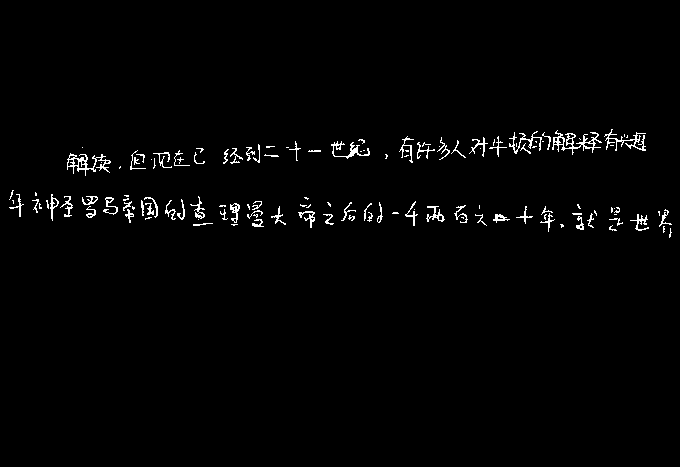 解读，但现在已经到二十一世纪，有许多人对牛顿的解释有兴趣
年神圣罗马帝国的查理曼大帝之后的一千两百六十年，就是世界